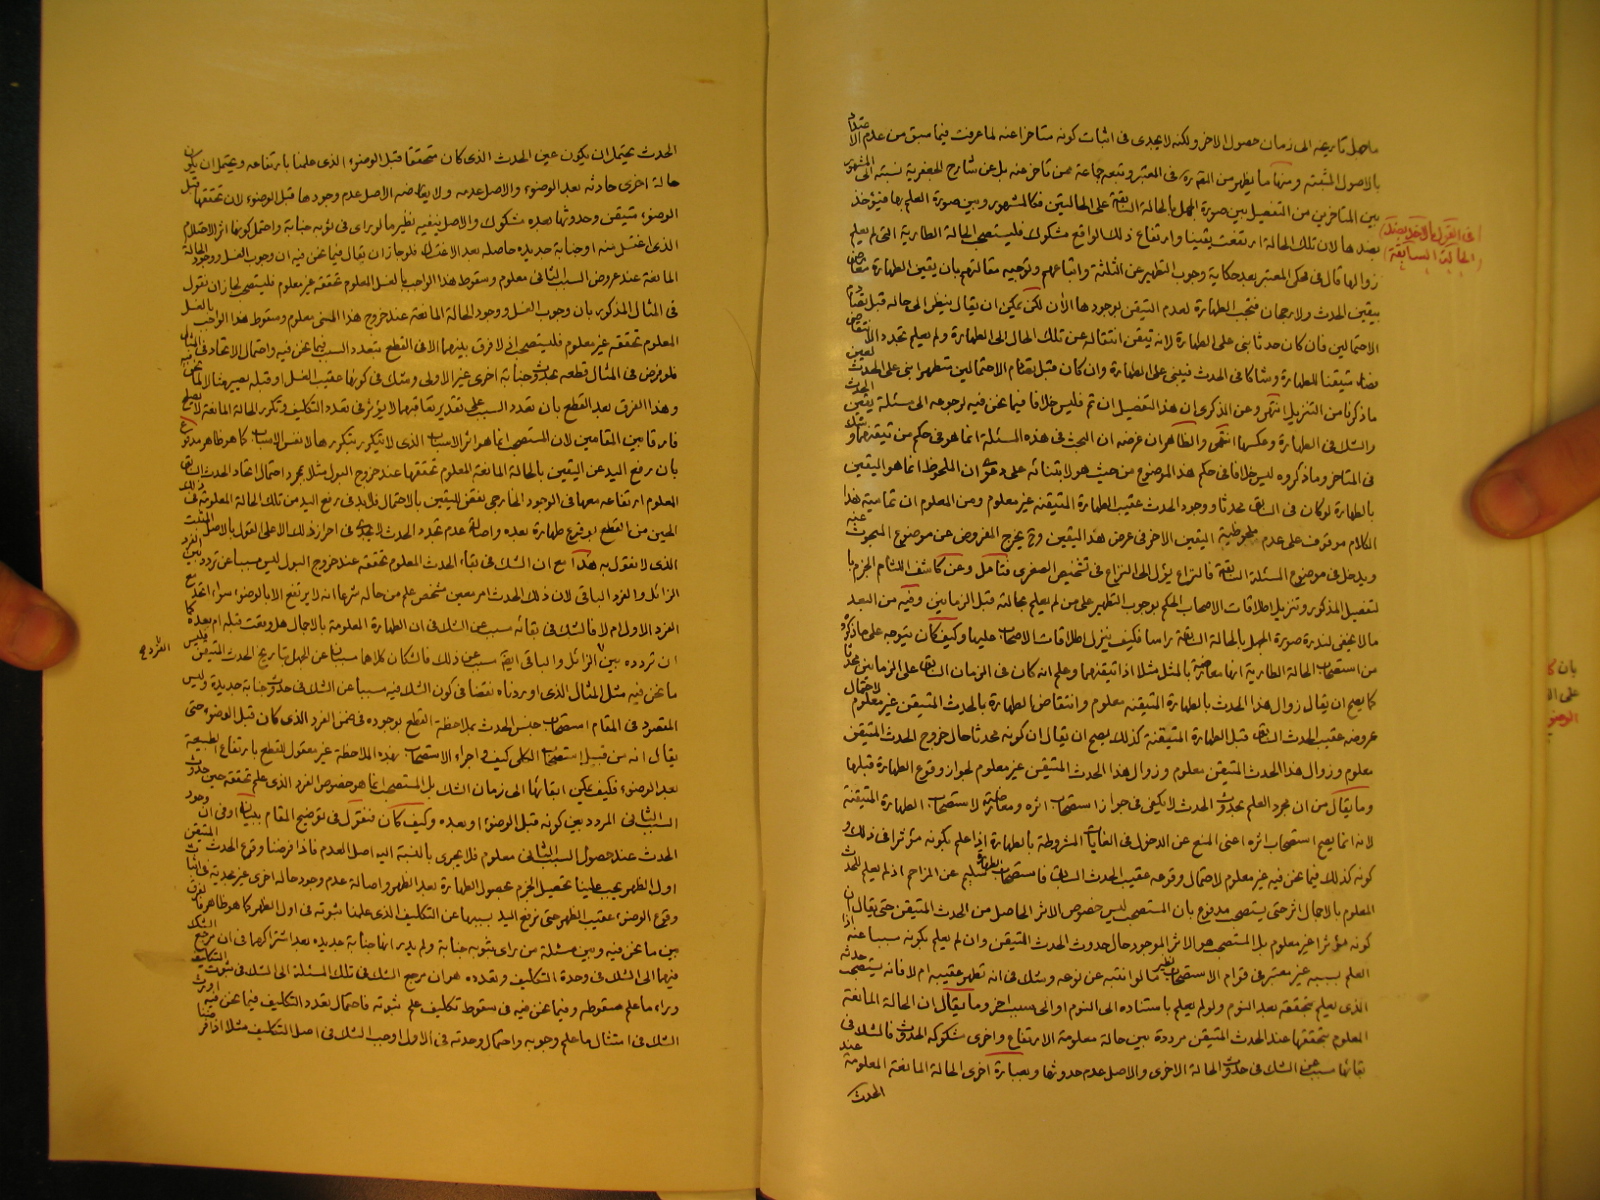 ما جهل تاريخه الى زمان حصول الاخر ولكنه لا يجدى فى اثبات كونه متاخرا عنه لما عرفت فيما سبق من عدم الاعتداد
بالاصول المثبته ومنها ما يظهر من المص ره فى المعتبر وتبعه جماعة ممن تاخر عنه بل عن شارح الجعفرية نسبته الى المشهور
بين المتاخرين من التفصيل بين صورة الجهل بالحالة السابقة على الحالتين فكالمشهور وبين صورة العلم بها فيؤخذ
بضدها لان تلك الحالة ارتفعت يقينا وارتفاع ذلك الواقع مشكوك فليستصحب الحالة الطارية التى لم يعلم
زوالها قال فى محكى المعتبر بعد حكاية وجوب التطهير عن الثلثة واتباعهم وتوجيه مقالتهم بان يقين الطهارة معارض
بيقين الحدث ولا رجحان فتجب الطهارة لعدم التيقن بوجودها الان لكن يمكن ان يقال ينظر الى حاله قبل تصادم
الاحتمالين فان كان حدثا بنى على الطهارة لانه تيقن انتقاله عن تلك الحال الى الطهارة ولم يعلم تجدد الانتقاض
فصار متيقنا للطهارة وشاكا فى الحدث فيبنى على الطهارة وان كان قبل تصادم الاحتمالين متطهرا بنى على الحدث لعين
ما ذكرنا من التنزيل انتهى وعن الذكرى ان هذا التفصيل ان تم فليس خلافا فيما نحن فيه لرجوعه الى مسئلة يقين الحدث
والشك فى الطهارة وعكسها انتهى والظاهر ان غرضه ان البحث فى هذه المسئلة انما هو فى حكم من تيقنهما وشك
فى المتاخر وما ذكروه ليس خلافا فى حكم هذا الموضوع من حيث هو لابتنائه على دعوى ان الملحوظ انما هو اليقين
بالطهارة لو كان فى السابق محدثا ووجود الحدث عقيب الطهارة المتيقنة غير معلوم ومن المعلوم ان تمامية هذا
الكلام موقوف على عدم ملحوظية اليقين الاخر فى عرض هذا اليقين وح يخرج المفروض عن موضوع المبحوث عنه
ويدخل فى موضوع المسئلة السابقة فالنزاع يؤل الى النزاع فى تشخيص الصغرى فتامل وعن كاشف اللثام الجزم با
لتفصيل المذكور وتنزيل اطلاقات الاصحاب الحكم بوجوب التطهير على من لم يعلم بحالته قبل الزمانين وفيه من البعد
ما لا يخفى لندرة صورة الجهل بالحالة السابقة راسا فكيف ينزل اطلاقات الاصحاب عليها وكيف كان يتوجه على ما ذكره
من استصحاب الحالة الطارية انها معارضة بالمثل مثلا اذا تيقنهما وعلم انه كان فى الزمان السابق على الزمانين محدثا
كما يصح ان يقال زوال هذا الحدث بالطهارة المتيقنه معلوم وانتقاض الطهارة بالحدث المتيقن غير معلوم لاحتمال
عروضه عقيب الحدث السابق قبل الطهارة المتيقنة كذلك يصح ان يقال ان كونه محدثا حال خروج الحدث المتيقن
معلوم وزوال هذا الحدث المتيقن معلوم وزوال هذا الحدث المتيقن غير معلوم لجواز وقوع الطهارة قبلها
وما يقال من ان مجرد العلم بحدوث الحدث لا يكفى فى جواز استصحاب اثره ومعارضته لاستصحاب الطهارة المتيقنة
لانه انما يصح استصحاب اثره اعنى المنع عن الدخول فى الغايات المشروطة بالطهارة اذا علم بكونه مؤثرا فى ذلك و
كونه كذلك فيما نحن فيه غير معلوم لاحتمال وقوعه عقيب الحدث السابق فاستصحاب الطهارة سليم عن المزاحم اذ لم يعلم للحدث
المعلوم بالاجمال اثر حتى يستصحب مدفوع بان المستصحب ليس خصوص الاثر الحاصل من الحدث المتيقن حتى يقال ان
كونه مؤثرا غير معلوم بل المستصحب هو الاثر الموجود حال حدوث الحدث المتيقن وان لم يعلم بكونه سببا عنه اذا
العلم بسببه غير معتبر فى قوام الاستصحاب نظير ما لو انتبه عن نومه وشك فى انه تطهر عقيبه ام لا فانه يستصحب حدثه
الذى يعلم بتحققه بعد النوم ولو لم يعلم باستناده الى النوم او الى سبب اخر وما يقال ان الحالة المانعة
المعلوم بتحققها عند الحدث المتيقن مرددة بين حالة معلومة الارتفاع واخرى مشكوكه الحدوث فالشك فى
بقائها مسبب عن الشك فى حدوث الحالة الاخرى والاصل عدم حدوثها وبعبارة اخرى الحالة المانعة المعلومة عند
الحدث
اعنى القول بالاخذ بضد
الحالة السابقة
الحدث يحتمل ان يكون عين الحدث الذى كان متحققا قبل الوضوء الذى علمنا بارتفاعه ويحتمل ان يكون
حالة اخرى حادثه بعد الوضوء والاصل عدمه ولا يعارضه الاصل عدم وجودها قبل الوضوء لان تحققها قبل
الوضوء متيقن وحدوثها بعده مشكوك والاصل ينفيه نظير ما لو راى فى ثوبه جنابة واحتمل كونها اثر الاحتلام
الذى اغتسل منه او جنابة جديده حاصله بعد الاغتسال فلو جاز ان يقال فيما نحن فيه ان وجوب الغسل ووجود الحالة
المانعة عند عروض السبب الثانى معلوم وسقوط هذا الواجب بالغسل المعلوم تحققه غير معلوم فليستصحب لجاز ان نقول
فى المثال المذكور بان وجوب الغسل ووجود الحالة المانعة عند خروج هذا المنى معلوم وسقوط هذا الواجب بالغسل
المعلوم تحققه غير معلوم فليستصحب اذ لا فرق بينهما الا فى القطع بتعدد السبب فيما نحن فيه واحتمال الاتحاد فى المثال
فلو فرض فى المثال قطعه بحدوث جنابة اخرى غير الاولى وشك فى كونها عقيب الغسل او قبله يصير مثالا لما نحن فيه
وهذا الفرق بعد القطع بان تعدد السبب على تقدير تعاقبهما لا يؤثر فى تعدد التكليف وتكرر الحالة المانعة لا يصلح
فارقا بين المقامين لان المستصحب انما هو اثر الاسباب الذى لا يتكرر بتكررها لا نفس الاسباب كما هو ظاهر مدفوع
بان رفع اليد عن اليقين بالحالة المانعة المعلوم تحققها عند خروج البول مثلا بمجرد احتمال اتحاد الحدث السابق
المعلوم ارتفاعه معها فى الوجود الخارجى نقض لليقين بالاحتمال فلا بد فى رفع اليد من تلك الحالة المعلومة فى ذلك
الحين من القطع بوقوع طهارة بعده واصالة عدم تجدد الحدث لا يجدى فى احراز ذلك الا على القول بالاصل المثبت
الذى لا نقول به هذا مع ان الشك فى بقاء الحدث المعلوم تحققه عند خروج البول ليس مسببا عن تردده بين الفرد
الزائل والفرد الباقى لان ذلك الحدث امر معين مشخص علم من حاله شرعا انه لا يرتفع الا بالوضوء سواء اتحد مع
الفرد الاول ام لا فالشك فى بقائه مسبب عن الشك فى ان الطهارة المعلومة بالاجمال هل وقعت قبله ام بعده كما
ان تردده بين الزائل والباقى ايضا مسبب عن ذلك فالشكان كلاهما مسببان عن الجهل بتاريخ الحدث المتيقن فليس
ما نحن فيه مثل المثال الذى اوردناه نقضا فى كون الشك فيه مسببا عن الشك فى حدوث جنابة جديدة وليس
المقصود فى المقام استصحاب جنس الحدث بملاحظة القطع بوجوده فى ضمن الفرد الذى كان قبل الوضوء حتى
يقال انه من قبيل استصحاب الكلى كيف واجراء الاستصحاب بهذه الملاحظة غير معقول للقطع بارتفاع الطبيعة
بعد الوضوء فكيف يمكن ابقائها الى زمان الشك بل المستصحب انما هو خصوص الفرد الذى علم تحققه حين حدوث
السبب الثانى المردد بين كونه قبل الوضوء او بعده وكيف كان فنقول فى توضيح المقام ببيان اوفى ان وجود
الحدث عند حصول السبب الثانى معلوم فلا يجرى بالنسبة اليه اصل العدم فاذا فرضنا وقوع الحدث المتيقن
اول الظهر يجب علينا تحصيل الجزم بحصول الطهارة بعد الظهر واصالة عدم وجود حاله اخرى غير مجدية فى اثبات
وقوع الوضوء عقيب الظهر حتى نرفع اليد بسببها عن التكليف الذى علمنا بثبوته فى اول الظهر كما هو ظاهر فالفرق
بين ما نحن فيه وبين مسئلة من راى بثوبه جنابة ولم يدر انها جنابة جديده بعد اشتراكهما فى ان مرجع الشك
فيهما الى الشك فى وحدة التكليف وتعدده هو ان مرجع الشك فى تلك المسئلة الى الشك فى ثبوت التكليف
وراء ما علم سقوطه وفيما نحن فيه فى سقوط تكليف علم ثبوته فاحتمال تعدد التكليف فيما نحن فيه اورث
الشك فى امتثال ما علم وجوبه واحتمال وحدته فى الاول اوجب الشك فى اصل التكليف مثلا اذا فرضنا
الفرد
بان
على
الوضوء